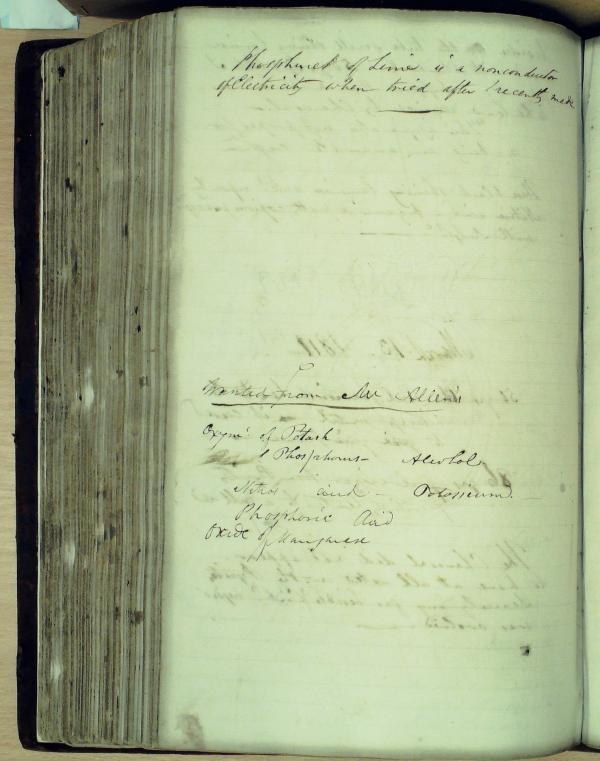 Phosphuret of Lime is a nonconductor
of Electricity when tried after recently made
Wanted from Mr Allen's
Oxym: of Potash
Phosphorus - Alcohol
Nitros acid - Potassium.
Phosphoric Acid
Oxide of Manganese